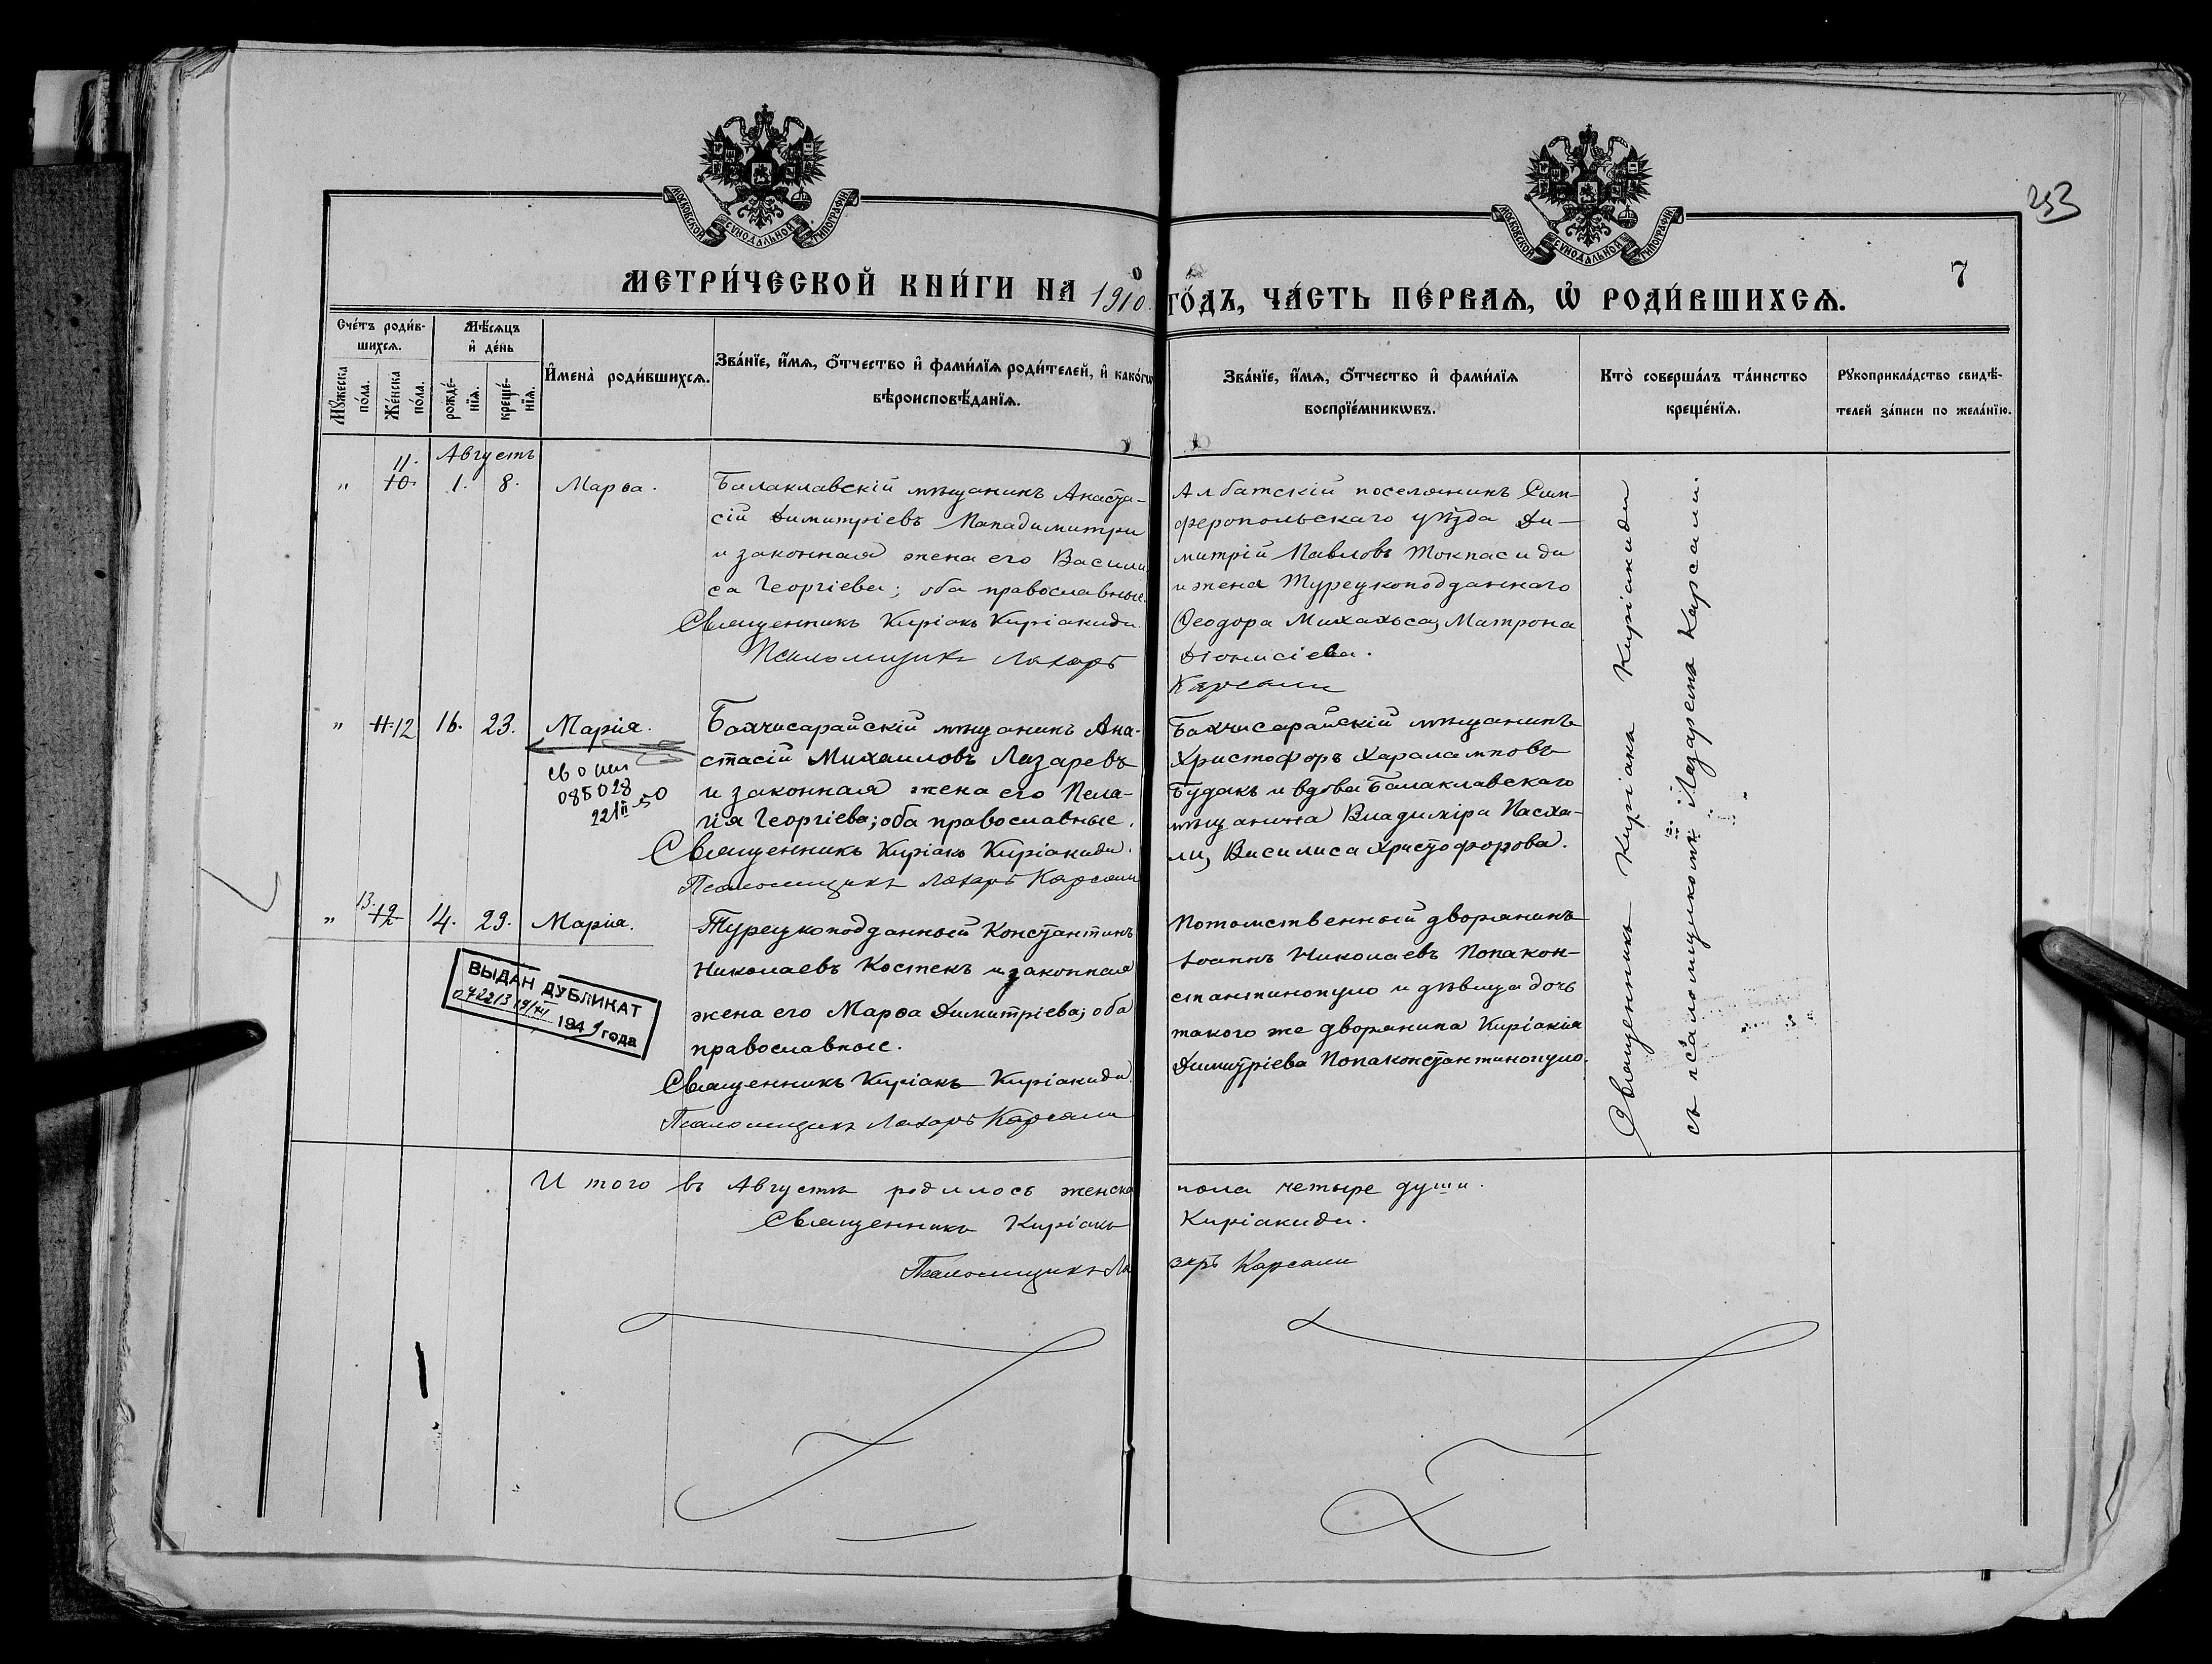 МОСКОВСКОЙ СѴНОДАЛЬНОЙ ТИПОГРАФІИ
МОСКОВСКОЙ СѴНОДАЛЬНОЙ ТИПОГРАФІИ
253
МЕТРИ́ЧЕСКОЙ КНИ́ГИ НА 1910
ГО́ДЪ, ЧА́СТЬ ПЕ́РВАѦ, Ѡ҆ РОДИ́ВШИХСѦ.
7
Сче́тъ роди́в-
шихсѧ.
Мꙋ́жеска
по́ла.
Же́нска
по́ла.
Мѣ́сѧцъ
и҆ де́нь
рожде́-
нїѧ.
креще́-
нїѧ.
И҆мена̀ роди́вшихсѧ.
Зва́нїе, и҆́мѧ, ѻ҆́тчество и҆ фами́лїѧ роди́телей, и҆ како́гѡ
вѣроисповѣ́данїѧ.
Зва́нїе, и҆́мѧ, ѻ҆́тчество и҆ фами́лїѧ
воспрїе́мникѡвъ.
Кто̀ соверша́лъ та́инство
креще́нїѧ.
Рꙋкоприкла́дство свидѣ́-
телей за́писи по жела́нїю.
Августъ
11.
" 10. 1. 8. Марѳа.
Балаклавскій мѣщанинъ Анаста-
сій Димитріевъ Пападимитри
и законная жена его Васили
са Георгіева; оба православные.
Священникъ Киріакъ Киріакиди.
Псаломщикъ Лазарь
Албатскій поселянинъ Сим-
феропольскаго уѣзда Ди-
митрій Павловъ Токпасиди
и жена Турецкоподданнаго
Ѳеодора Михальса, Матрона
Діонисіева.
Карсали
" 11. 12 16. 23. Марія.
св о рож
085028
22/II-50
Бахчисарайскій мѣщанинъ Ана-
стасій Михаиловъ Лазаревъ
и законная жена его Пела-
гія Георгіева; оба православные.
Священникъ Киріакъ Киріакиди.
Псаломщикъ Лазарь Карсали
Бахчисарайскій мѣщанинъ
Христофоръ Хараламповъ
Будакъ и вдова Балаклавскаго
мѣщанина Владиміра Пасха-
ли, Василиса Христофорова.
13.
" 12 14. 29. Марія.
ВЫДАН ДУБЛИКАТ
1949 года
Турецкоподданный Константинъ
Николаевъ Костекъ и законная
жена его Марѳа Димитріева; оба
православные.
Священникъ Киріакъ Киріакиди.
Псаломщикъ Лазарь Карсали
Потомственный дворянинъ
Іоаннъ Николаевъ Попакон-
стантинопуло и дѣвица дочь
такого же дворянина Киріакія
Димитріева Попаконстантинопуло.
Священникъ Киріакъ Киріакиди
съ псаломщикомъ Лазаремъ Карсали.
Итого въ Августѣ родилось женска
пола четыре души.
Священникъ Киріакъ
Киріакиди.
Псаломщикъ Ла
зарь Карсали